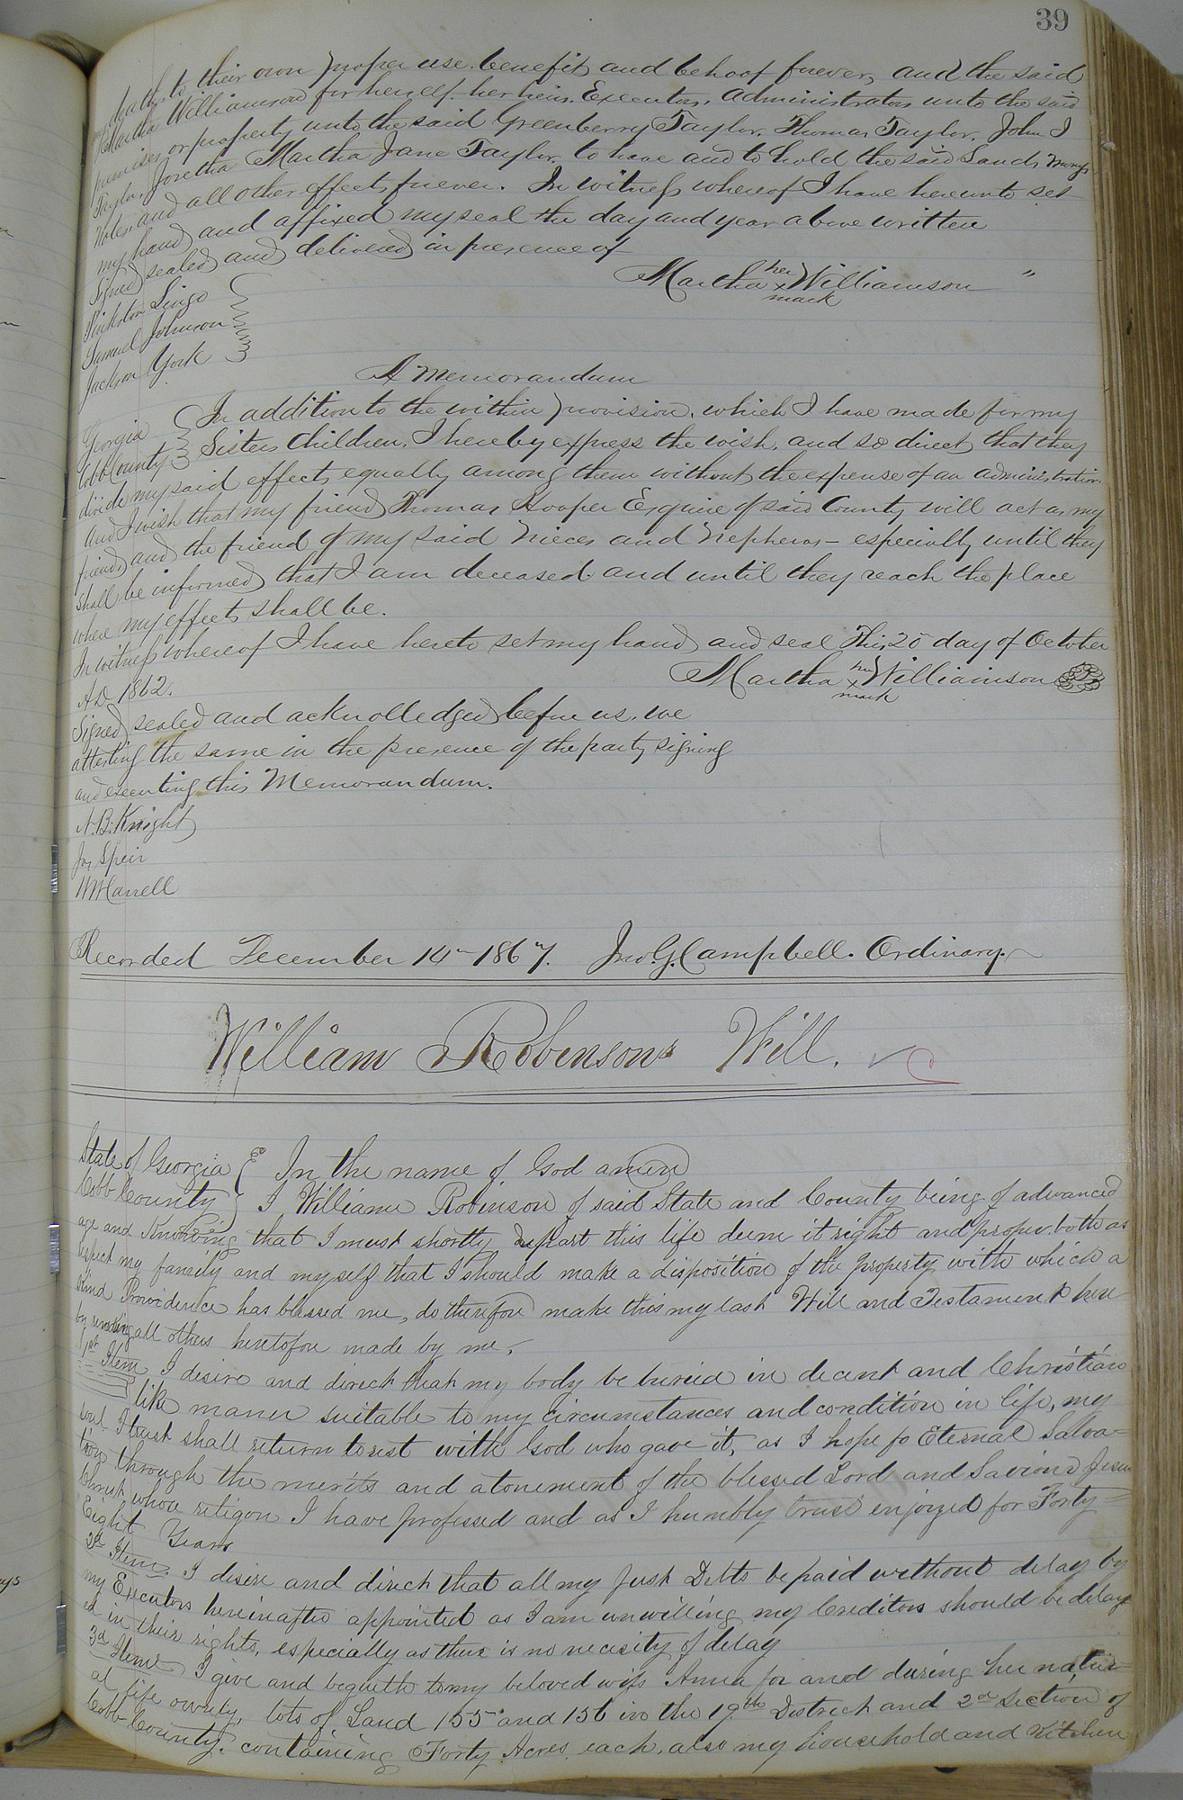 39
to their own proper use benefit and behoof forever, and the said
Martha Williamson for herself. her heirs. Executors, Administrators unto the said
premises or property unto the said Greenberry Taylor. Thomas Taylor. John I
Taylor Martha Jane Taylor to have and to hold the said Lands,
Notes and all other effects forever. In witness whereof I have hereunto set
my hand and affixed my seal the day and year above written
Signed sealed and delivered in presence of
Martha her x mark Williamson "
Pinkston Lingo
Samuel Johnson
Jackson York
A Memorandum
Georgia
Cobb County
In addition to the within provision, which I have made for my
Sisters Children, I hereby express the wish, and so direct that they
divide my said effects equally among them without the expense of an administration.
And I wish that my friend Thomas Hooper Esquire of said County will act as my
friend and the friend of my said Nieces and Nephews - especially until they
shall be informed that I am deceased and until they reach the place
where my effects shall be.
In witness whereof I have hereto set my hand and seal This 25 day of October
AD 1862.
Martha her x mark Williamson
Signed sealed and acknolledged before us, we
attesting the same in the presence of the party signing
and executing this Memorandum.
A. B. Knight
Speir
Recorded December 14 1867. Jno. G. Campbell. Ordinary.
William Robinsons Will.
State of Georgia
Cobb County
In the name of God amen
I William Robinson of said State and County being of advanced
age and Knowing that I must shortly depart this life deem it right and proper both as
respect my family and myself that I should make a disposition of the property with which a
kind Providence has blessed me, do therefore make this my last Will and Testament here
by revoking all others heretofore made by me.
1st Item I desire and direct that my body be buried in decent and Christian
like maner suitable to my circumstances and condition in life, my
soul I trust shall return to rest with God who gave it, as I hope fo Eternal Salva=
tion through the merits and atonement of the blessed Lord and Saviour Jesus
Christ whose religon I have professed and as I humbly trust enjoyed for Forty=
Eight Years
2d Item. I desire and direct that all my just Debts be paid without delay by
my Executors hereinafter appointed as I am unwilling my Creditors should be delay
ed in their rights, especially as there is no necisity of delay
3d Item I give and begueth to my beloved wife Anna for and during her natur=
al life lots of Land 155 and 156 in the 19th District and 2nd Section of
Cobb County. containing Forty Acres each, also my household and Kitchen